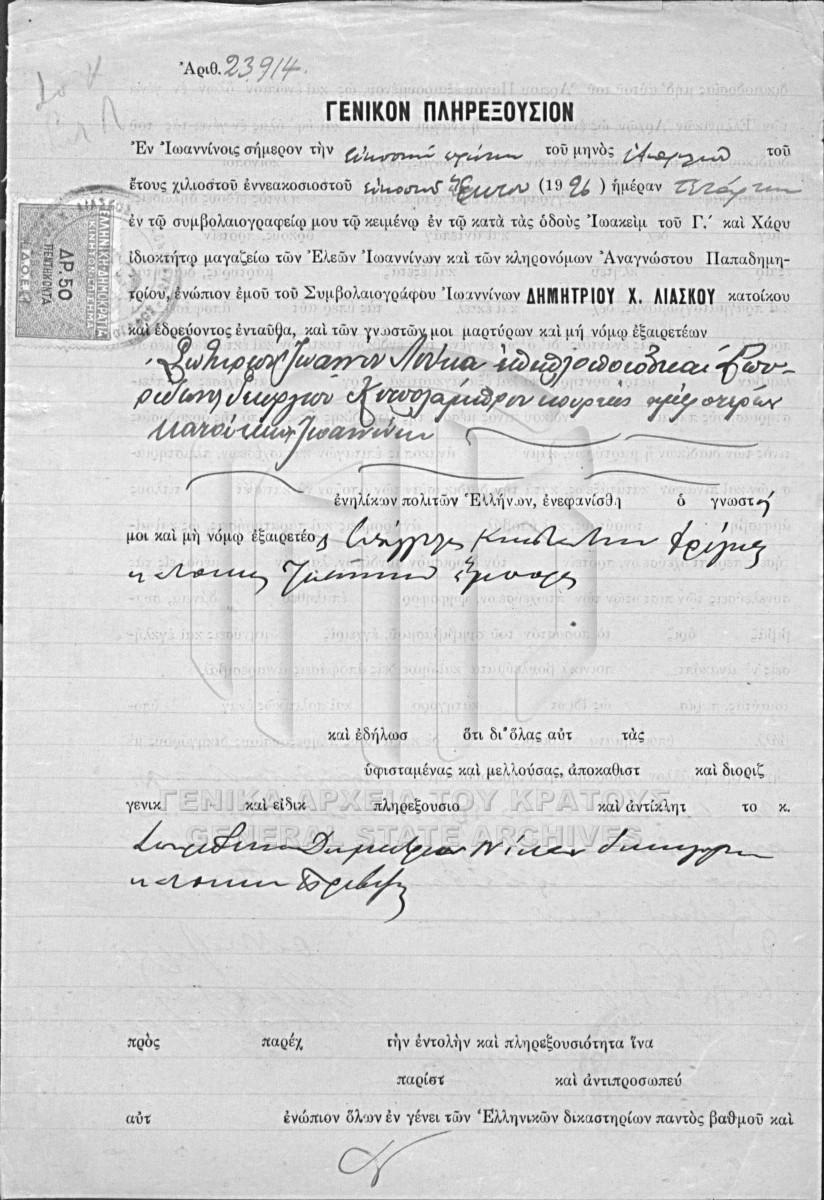 Ἀριθ. 23914.
ΓΕΝΙΚΟΝ ΠΛΗΡΕΞΟΥΣΙΟΝ
Ἐν Ἰωαννίνοις σήμερον τὴν εἰκοστὴν πρώτην τοῦ μηνὸς Ἀπριλίου τοῦ
ἔτους χιλιοστοῦ ἐννεακοσιοστοῦ εἰκοστοῦ ἕκτου (1926) ἡμέραν Τετάρτην
ἐν τῷ συμβολαιογραφείῳ μου τῷ κειμένῳ ἐν τῷ κατὰ τὰς ὁδοὺς Ἰωακεὶμ τοῦ Γ.´ καὶ Χάρυ
ἰδιοκτήτῳ μαγαζείῳ τῶν Ἐλεῶν Ἰωαννίνων καὶ τῶν κληρονόμων Ἀναγνώστου Παπαδημη-
τρίου, ἐνώπιον ἐμοῦ τοῦ Συμβολαιογράφου Ἰωαννίνων ΔΗΜΗΤΡΙΟΥ Χ. ΛΙΑΣΚΟΥ κατοίκου
καὶ ἑδρεύοντος ἐνταῦθα, καὶ τῶν γνωστῶν μοι μαρτύρων καὶ μὴ νόμῳ ἐξαιρετέων
Σωτηρίου Ἰωάννου Λούκα καὶ Σπυ-
ρίδωνος Γεωργίου κουρέως ἀμφοτέρων
κατοίκων Ἰωαννίνων
ἐνηλίκων πολιτῶν Ἑλλήνων, ἐνεφανίσθη ὁ γνωστός
μοι καὶ μὴ νόμῳ ἐξαιρετέος Κωνσταντίνου
κάτοικος Ἰωαννίνων ἔμπορος
καὶ ἐδήλωσ ὅτι δι' ὅλας αὐτ τὰς
ὑφισταμένας καὶ μελλούσας, ἀποκαθιστ καὶ διοριζ
γενικ καὶ εἰδικ πληρεξουσιο καὶ ἀντίκλητ το κ.
Δημητρίου δικηγόρον
κάτοικον Πρεβέζης
πρὸς παρέχ τὴν ἐντολὴν καὶ πληρεξουσιότητα ἵνα
παρίστ καὶ ἀντιπροσωπεύ
αὐτ ἐνώπιον ὅλων ἐν γένει τῶν Ἑλληνικῶν δικαστηρίων παντὸς βαθμοῦ καὶ
ΕΛΛΗΝΙΚΗ ΔΗΜΟΚΡΑΤΙΑ
ΚΙΝΗΤΟΝ ΕΠΙΣΗΜΑ
ΔΡ. 50
ΠΕΝΤΗΚΟΝΤΑ
ΓΕΝΙΚΑ ΑΡΧΕΙΑ ΤΟΥ ΚΡΑΤΟΥΣ
GENERAL STATE ARCHIVES